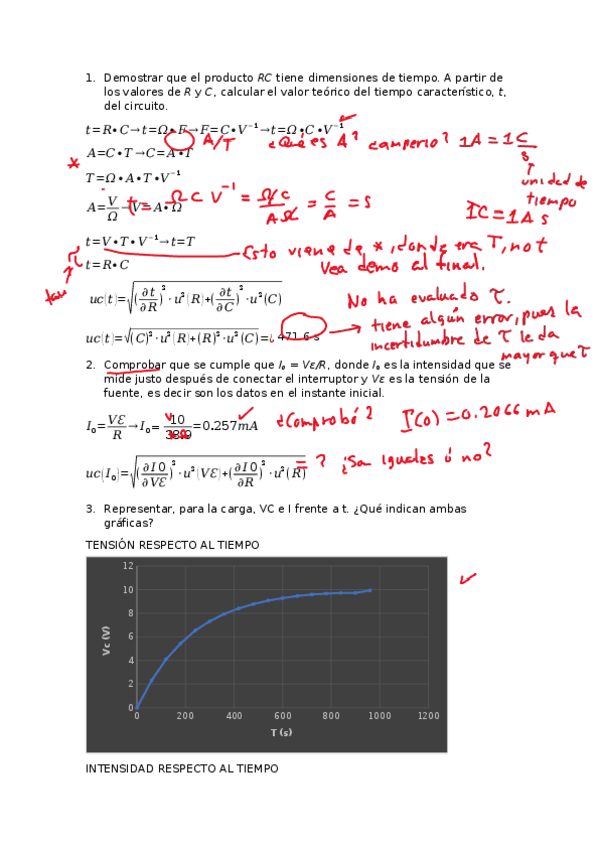 1. Demostrar que el producto RC tiene dimensiones de tiempo. A partir de
los valores de R y C, calcular el valor teórico del tiempo característico, t,
del circuito.
t=R•C→t=Ω•F→F=C•V⁻¹→t=Ω•C•V⁻¹
A/T ¿Qué es A? ¿amperio? 1A = 1C/s
* A=C•T→C=A•T
unidad de tiempo
T=Ω•A•T•V⁻¹
A=V/Ω→V=A•Ω
t = Ω C V⁻¹ = Ω C/AΩ = C/A = s
1C = 1A s
t=V•T•V⁻¹→t=T
Esto viene de *, donde era T, no t
Vea demo al final.
t=R•C
tau
uc(t)=√((∂t/∂R)²•u²(R)+(∂t/∂C)²•u²(C))
No ha evaluado τ.
uc(t)=√((C)²•u²(R)+(R)²•u²(C))=¿471.6 s
tiene algún error, pues la
incertidumbre de τ le da
mayor que τ
2. Comprobar que se cumple que I₀ = Vε/R, donde I₀ es la intensidad que se
mide justo después de conectar el interruptor y Vε es la tensión de la
fuente, es decir son los datos en el instante inicial.
I₀=VƐ/R→I₀=10/38.9=0.257mA
¿Comprobó? I(0)=0.2066 mA
uc(I₀)=√((∂I0/∂VƐ)²•u²(VƐ)+(∂I0/∂R)²•u²(R))
= ? ¿Son iguales ó no?
3. Representar, para la carga, VC e I frente a t. ¿Qué indican ambas
gráficas?
TENSIÓN RESPECTO AL TIEMPO
12
10
8
6
4
2
0
Vc (V)
0 200 400 600 800 1000 1200
T (s)
INTENSIDAD RESPECTO AL TIEMPO